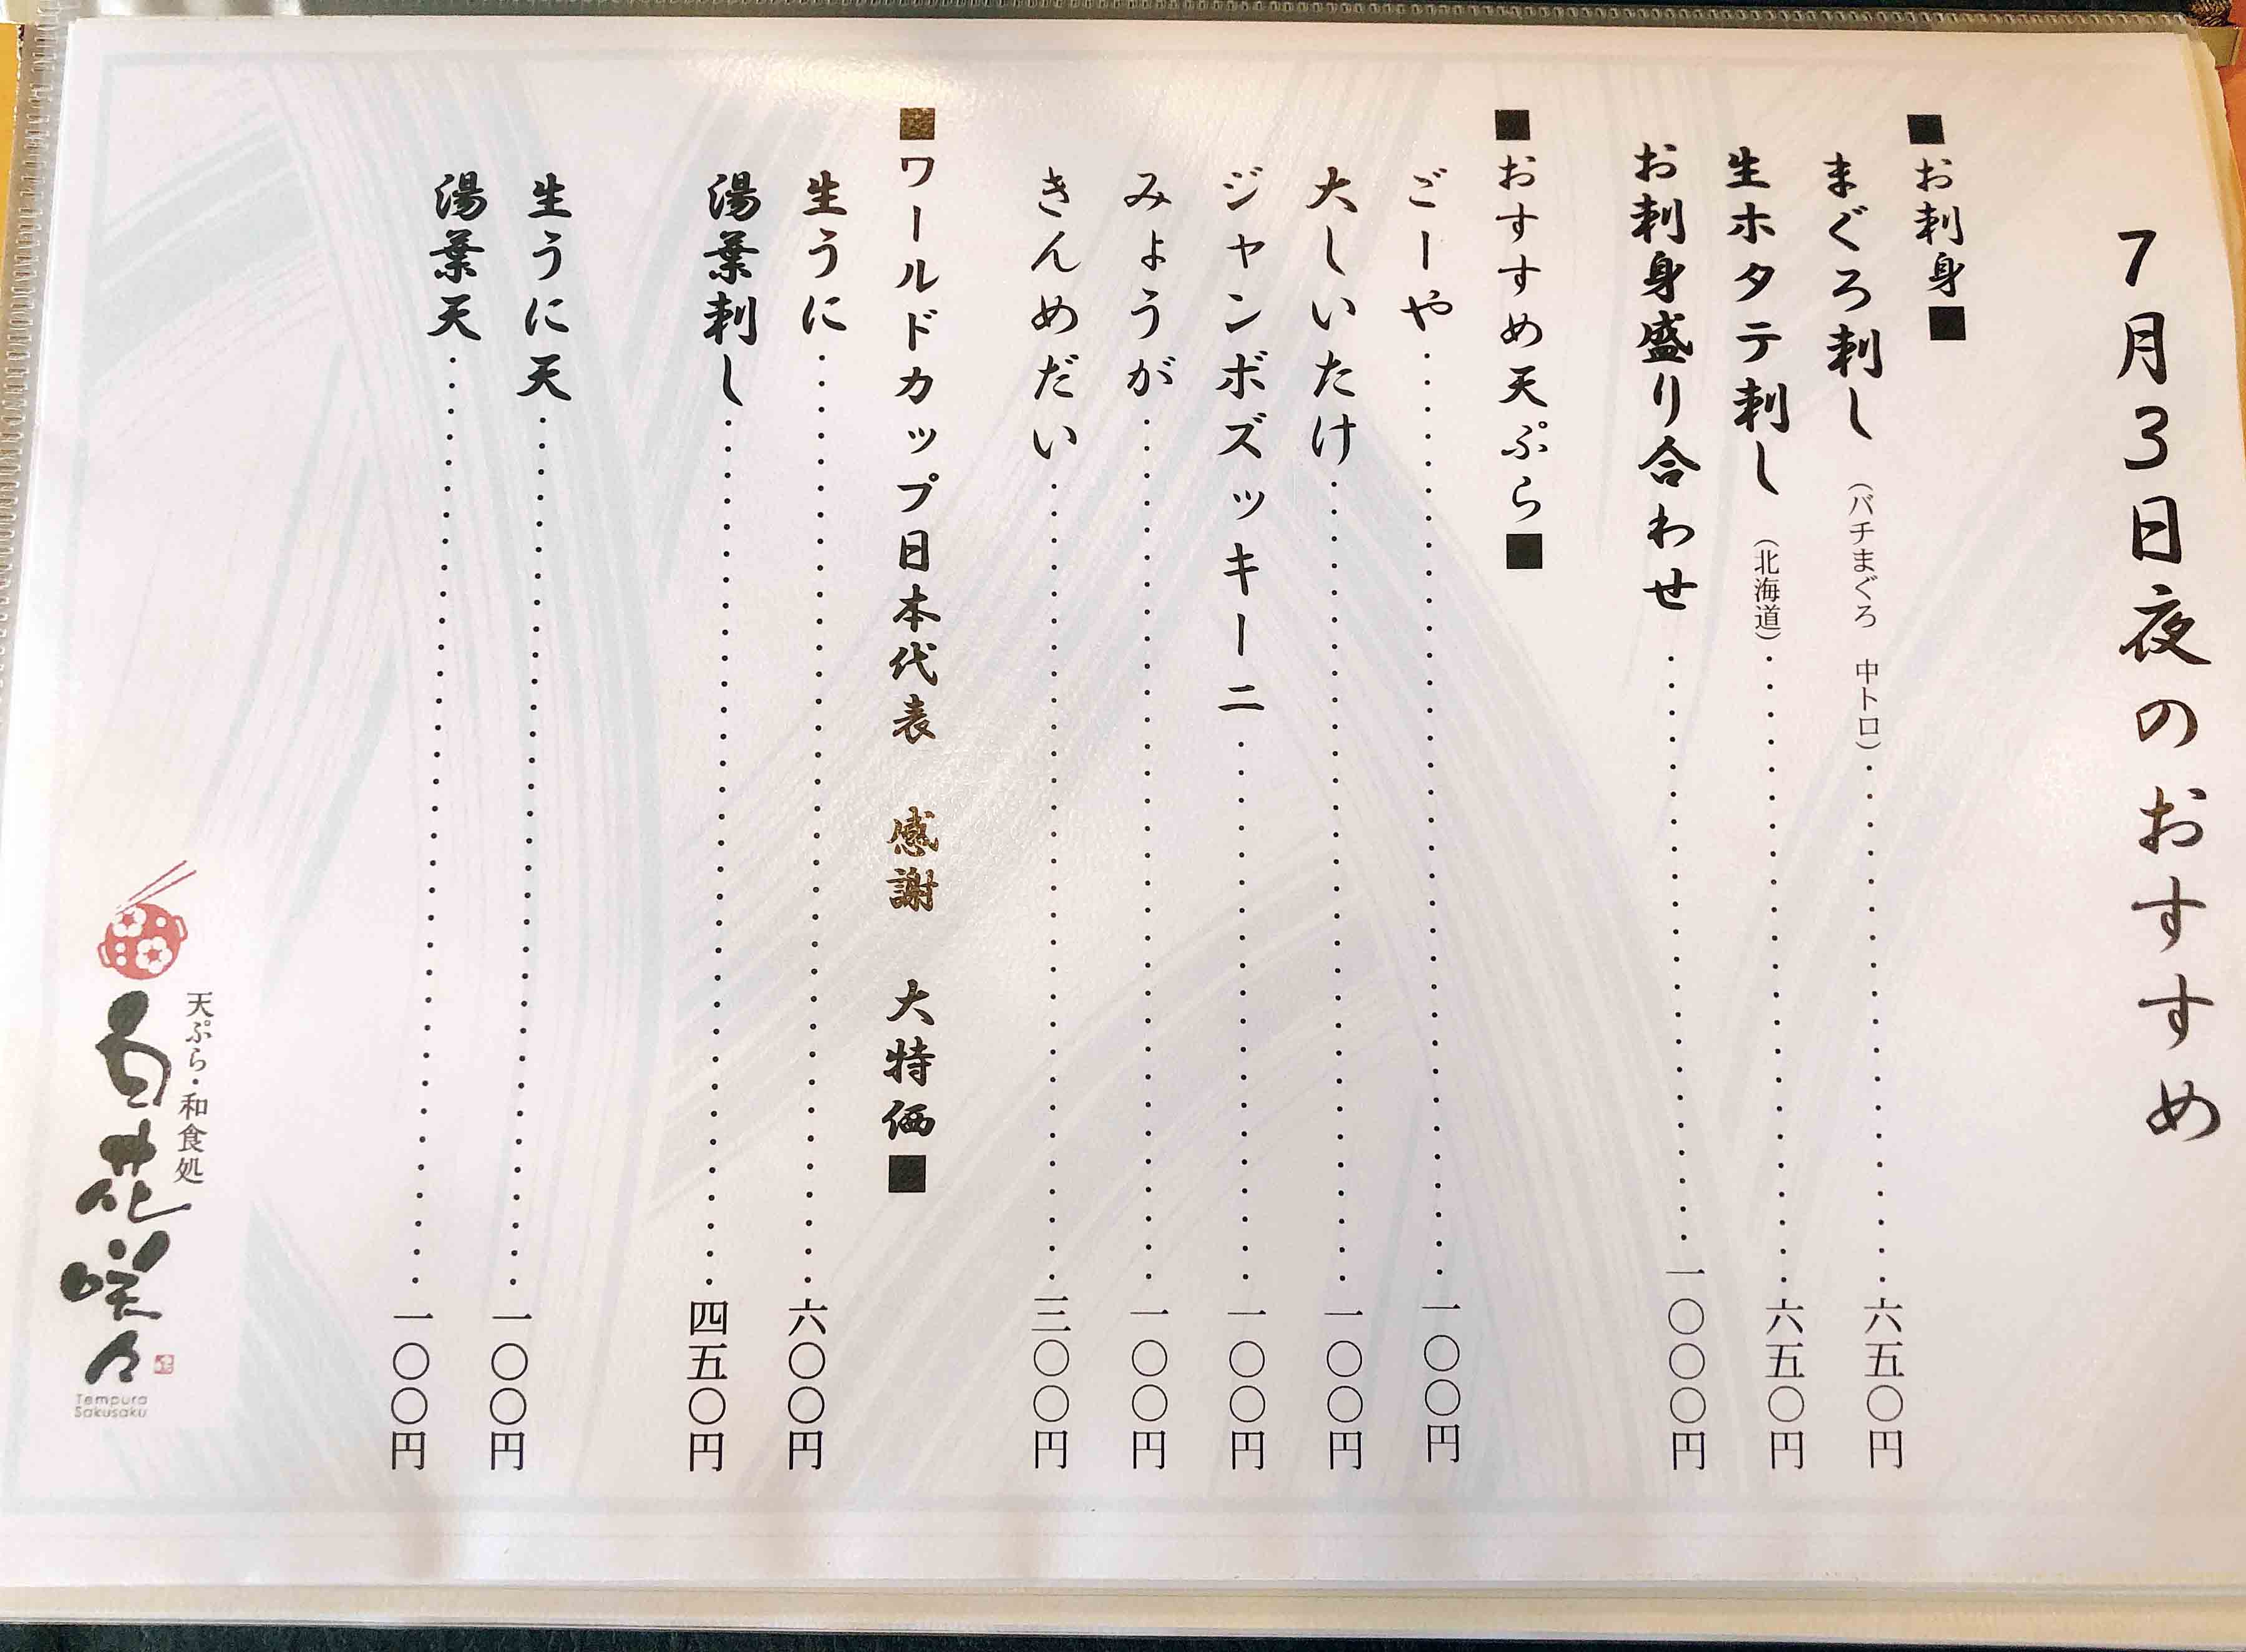 7月3日夜のおすすめ
■お刺身■
まぐろ刺し（バチまぐろ　中トロ）・・・・・・・・・・・・・・・・・・・・六五〇円
生ホタテ刺し（北海道）・・・・・・・・・・・・・・・・・・・・・・・・六五〇円
お刺身盛り合わせ・・・・・・・・・・・・・・・・・・・・・・一〇〇〇円
■おすすめ天ぷら■
ごーや・・・・・・・・・・・・・・・・・・・・・・・・・・・・・・・・・・一〇〇円
大しいたけ・・・・・・・・・・・・・・・・・・・・・・・・・・・・・・一〇〇円
ジャンボズッキーニ・・・・・・・・・・・・・・・・・・・・一〇〇円
みょうが・・・・・・・・・・・・・・・・・・・・・・・・・・・・・・・・一〇〇円
きんめだい・・・・・・・・・・・・・・・・・・・・・・・・・・・・・・三〇〇円
■ワールドカップ日本代表　感謝　大特価■
生うに・・・・・・・・・・・・・・・・・・・・・・・・・・・・・・・・・・六〇〇円
湯葉刺し・・・・・・・・・・・・・・・・・・・・・・・・・・・・・・・・四五〇円
生うに天・・・・・・・・・・・・・・・・・・・・・・・・・・・・・・・・一〇〇円
湯葉天・・・・・・・・・・・・・・・・・・・・・・・・・・・・・・・・・・一〇〇円
天ぷら・和食処
百花咲々
Tempura
Sakusaku